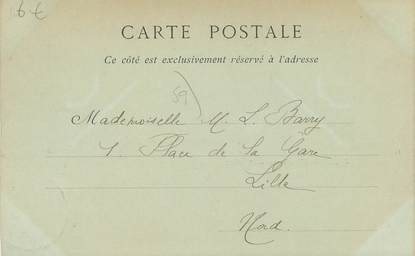 6€
CARTE POSTALE
Ce côté est exclusivement réservé à l'adresse
59
Mademoiselle M. L. Barry
1. Place de la Gare
Lille
Nord.